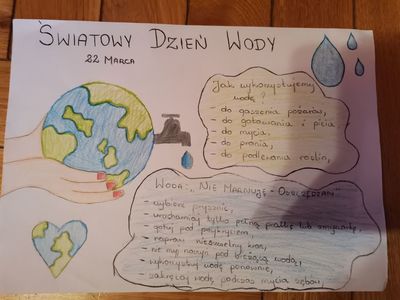 ŚWIATOWY DZIEŃ WODY
22 MARCA
Jak wykorzystujemy
wodę?
- do gaszenia pożarów,
- do gotowania i picia
- do mycia,
- do prania,
- do podlewania roślin,
WODA: „NIE MARNUJĘ - OSZCZĘDZAM"
- wybierz prysznic,
- uruchamiaj tylko pełną pralkę lub zmywarkę,
- gotuj pod przykryciem,
- napraw nieszczelny kran,
- nie myj naczyń pod bieżącą wodą,
- wykorzystuj wodę ponownie,
- zakręcaj wodę podczas mycia zębów,